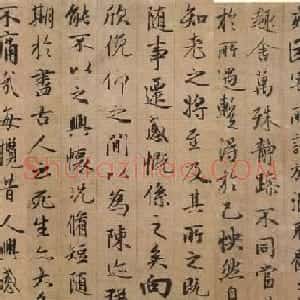 因寄所託放浪
趣舍萬殊靜躁不同當
於所遇蹔得於己怏然自
知老之將至及其所之既
隨事遷感慨係之矣向
欣俛仰之閒以為陳迹
能不以之興懷況脩短隨
期於盡古人云死生亦大
不痛哉每攬昔人興感